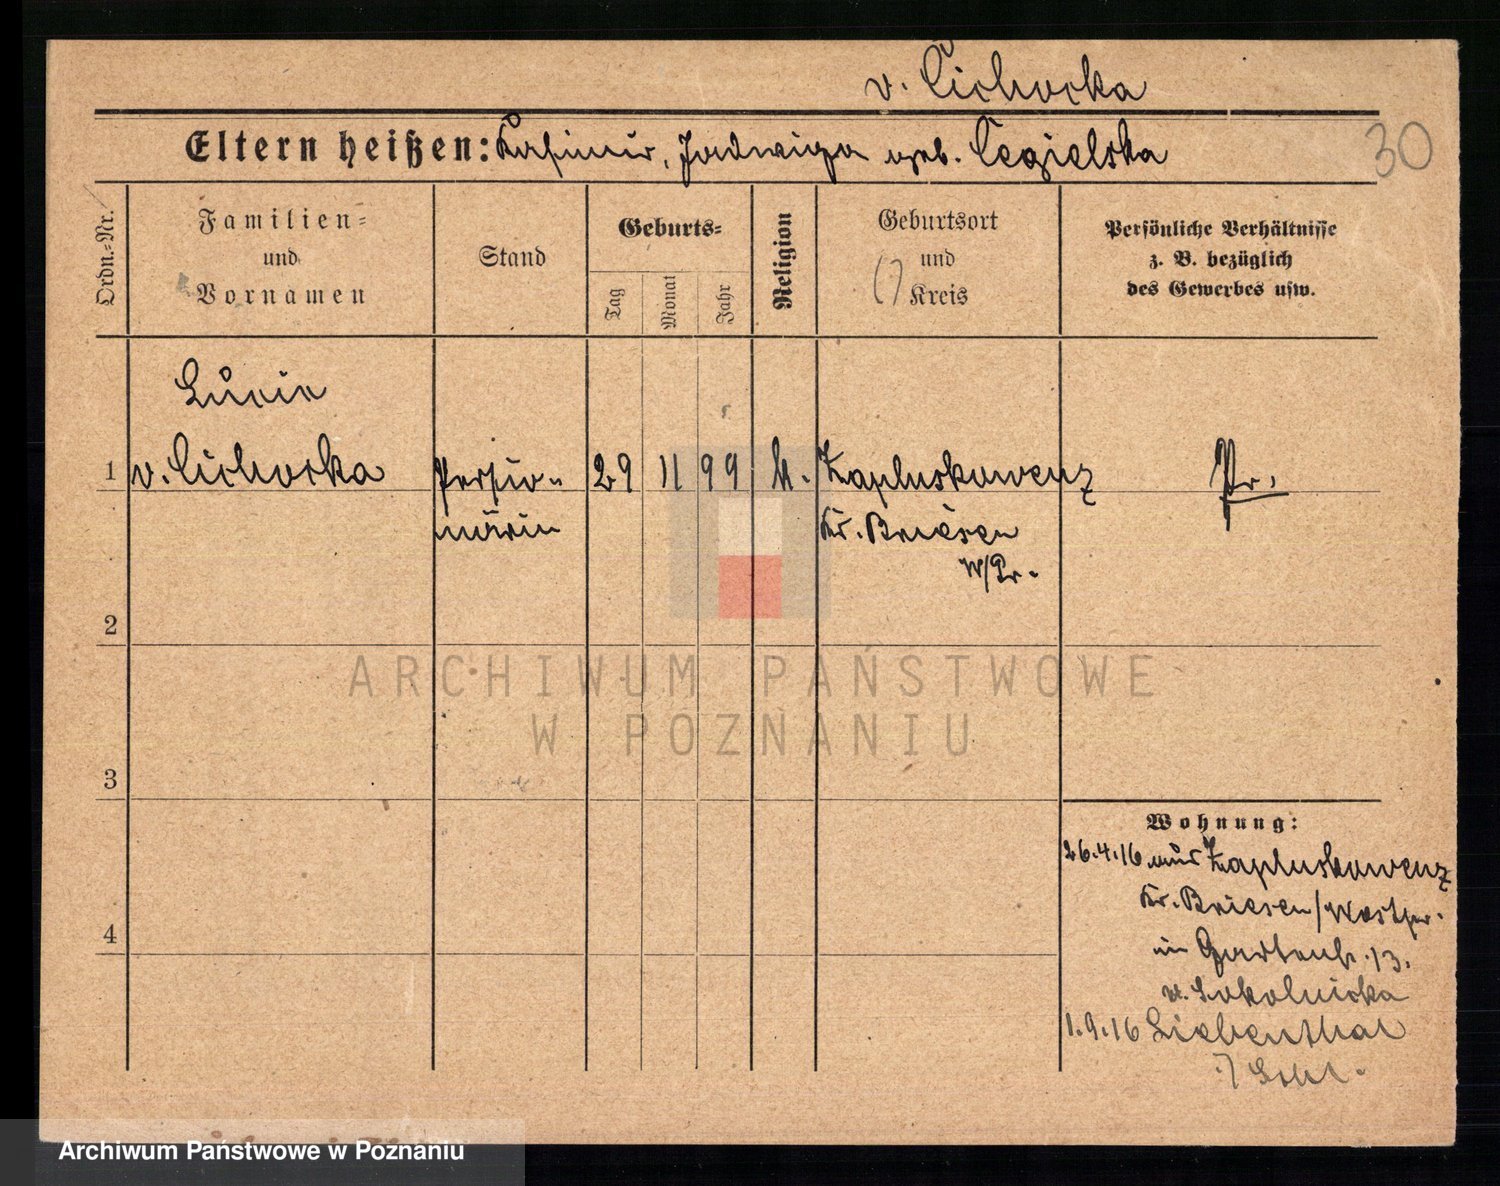 v. Cichocka
Eltern heißen: Kasimir, Jadwiga geb. Cegielska
30
Ordn.-Nr.
Familien-
und
Vornamen
Stand
Geburts-
Tag
Monat
Jahr
Religion
Geburtsort
und
Kreis
Persönliche Verhältnisse
z. B. bezüglich
des Gewerbes usw.
Lucie
1 v. Cichocka Pensio- 29 11 99 k. Zapluskowenz Pr.
närin Kr. Briesen
W/Pr.
2
ARCHIWUM PAŃSTWOWE
W POZNANIU
3
Wohnung:
26.4.16 aus Zapluskowenz
Kr. Briesen/Westpr.
in Gartenstr. 13.
v. Sokolnicka
4
1.9.16 Liebenthal
Archiwum Państwowe w Poznaniu